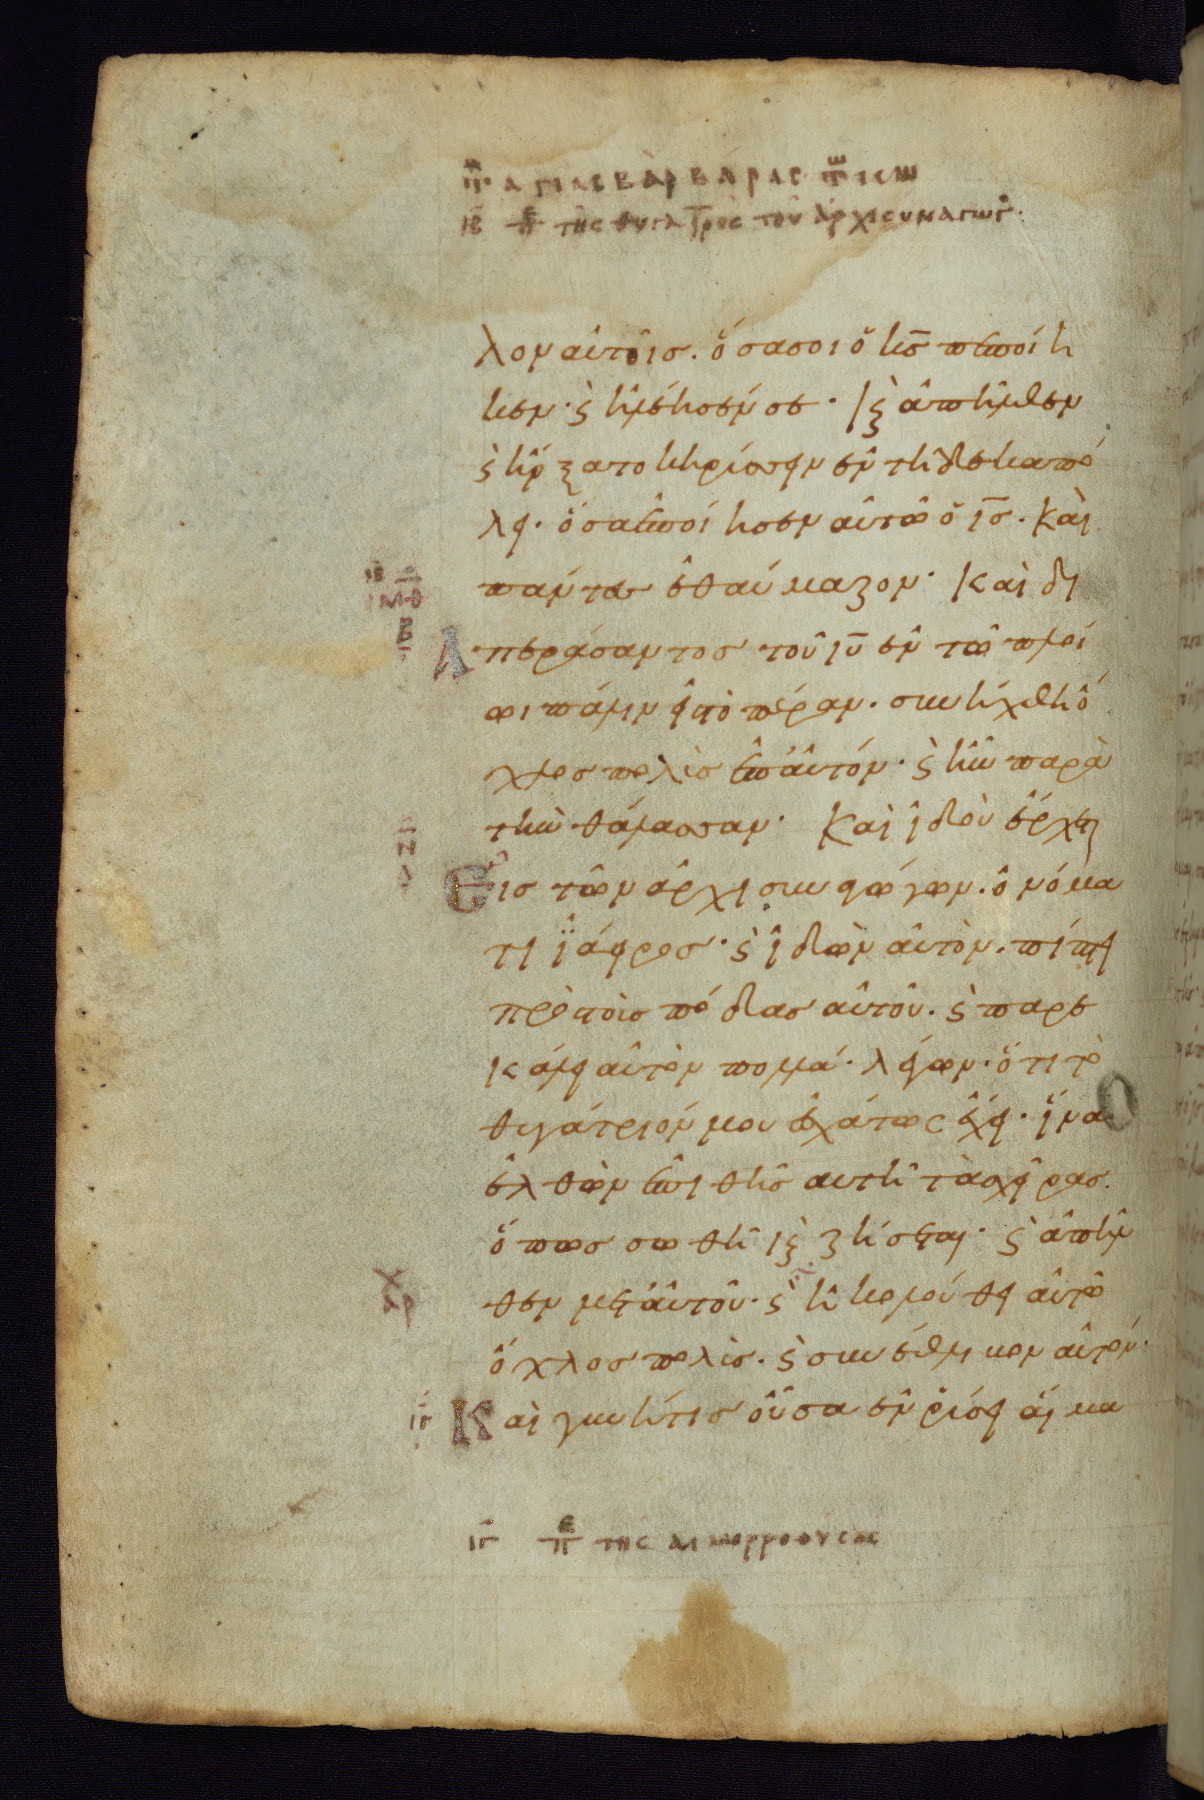 τῆς ἁγίας βαρβάρας
ιβ πε τῆς θυγατρὸς τοῦ ἀρχισυναγωγ
λον αὐτοῖς. ὅσα σοι ὁ κ̅ς̅ πεποίη
κεν· ϗ ἠλέησέν σε· ϗ ἀπῆλθεν
ϗ ἤρξατο κηρύσσειν ἐν τῆ δεκαπό
λει. ὅσα ἐποίησεν αὐτῶ ὁ ι̅ς̅. καὶ
πάντες ἐθαύμαζον· καὶ δι
απεράσαντος τοῦ ι̅υ̅ ἐν τῶ πλοί
ω πάλιν εἰς τὸ πέραν. συνήχθη ὄ
χλος πολὺς ἐπ' αὐτόν· ϗ ἦν παρὰ
τὴν θάλασσαν· καὶ ἰδοὺ ἔρχεται
εἷς τῶν ἀρχισυναγώγων. ὀνόμα
τι ϊάειρος· ϗ ἰδὼν αὐτὸν. πίπτει
πρὸς τοὺς πόδας αὐτοῦ. ϗ παρε
κάλει αὐτὸν πολλά· λέγων· ὅτι τὸ
θυγάτριόν μου ἐσχάτως ἔχει. ἵνα
ἐλθὼν ἐπιθῆς αὐτῆ τὰς χεῖρας.
ὅπως σωθῆ ϗ ζήσεται· ϗ ἀπῆλ
θεν μετ' αὐτοῦ· ϗ ἠκολούθει αὐτῶ
ὄχλος πολὺς. ϗ συνέθλιβον αὐτόν·
ιγ
Καὶ γυνή τις οὖσα ἐν ῥύσει αἵμα
ιγ πε τῆς αἱμορροούσης